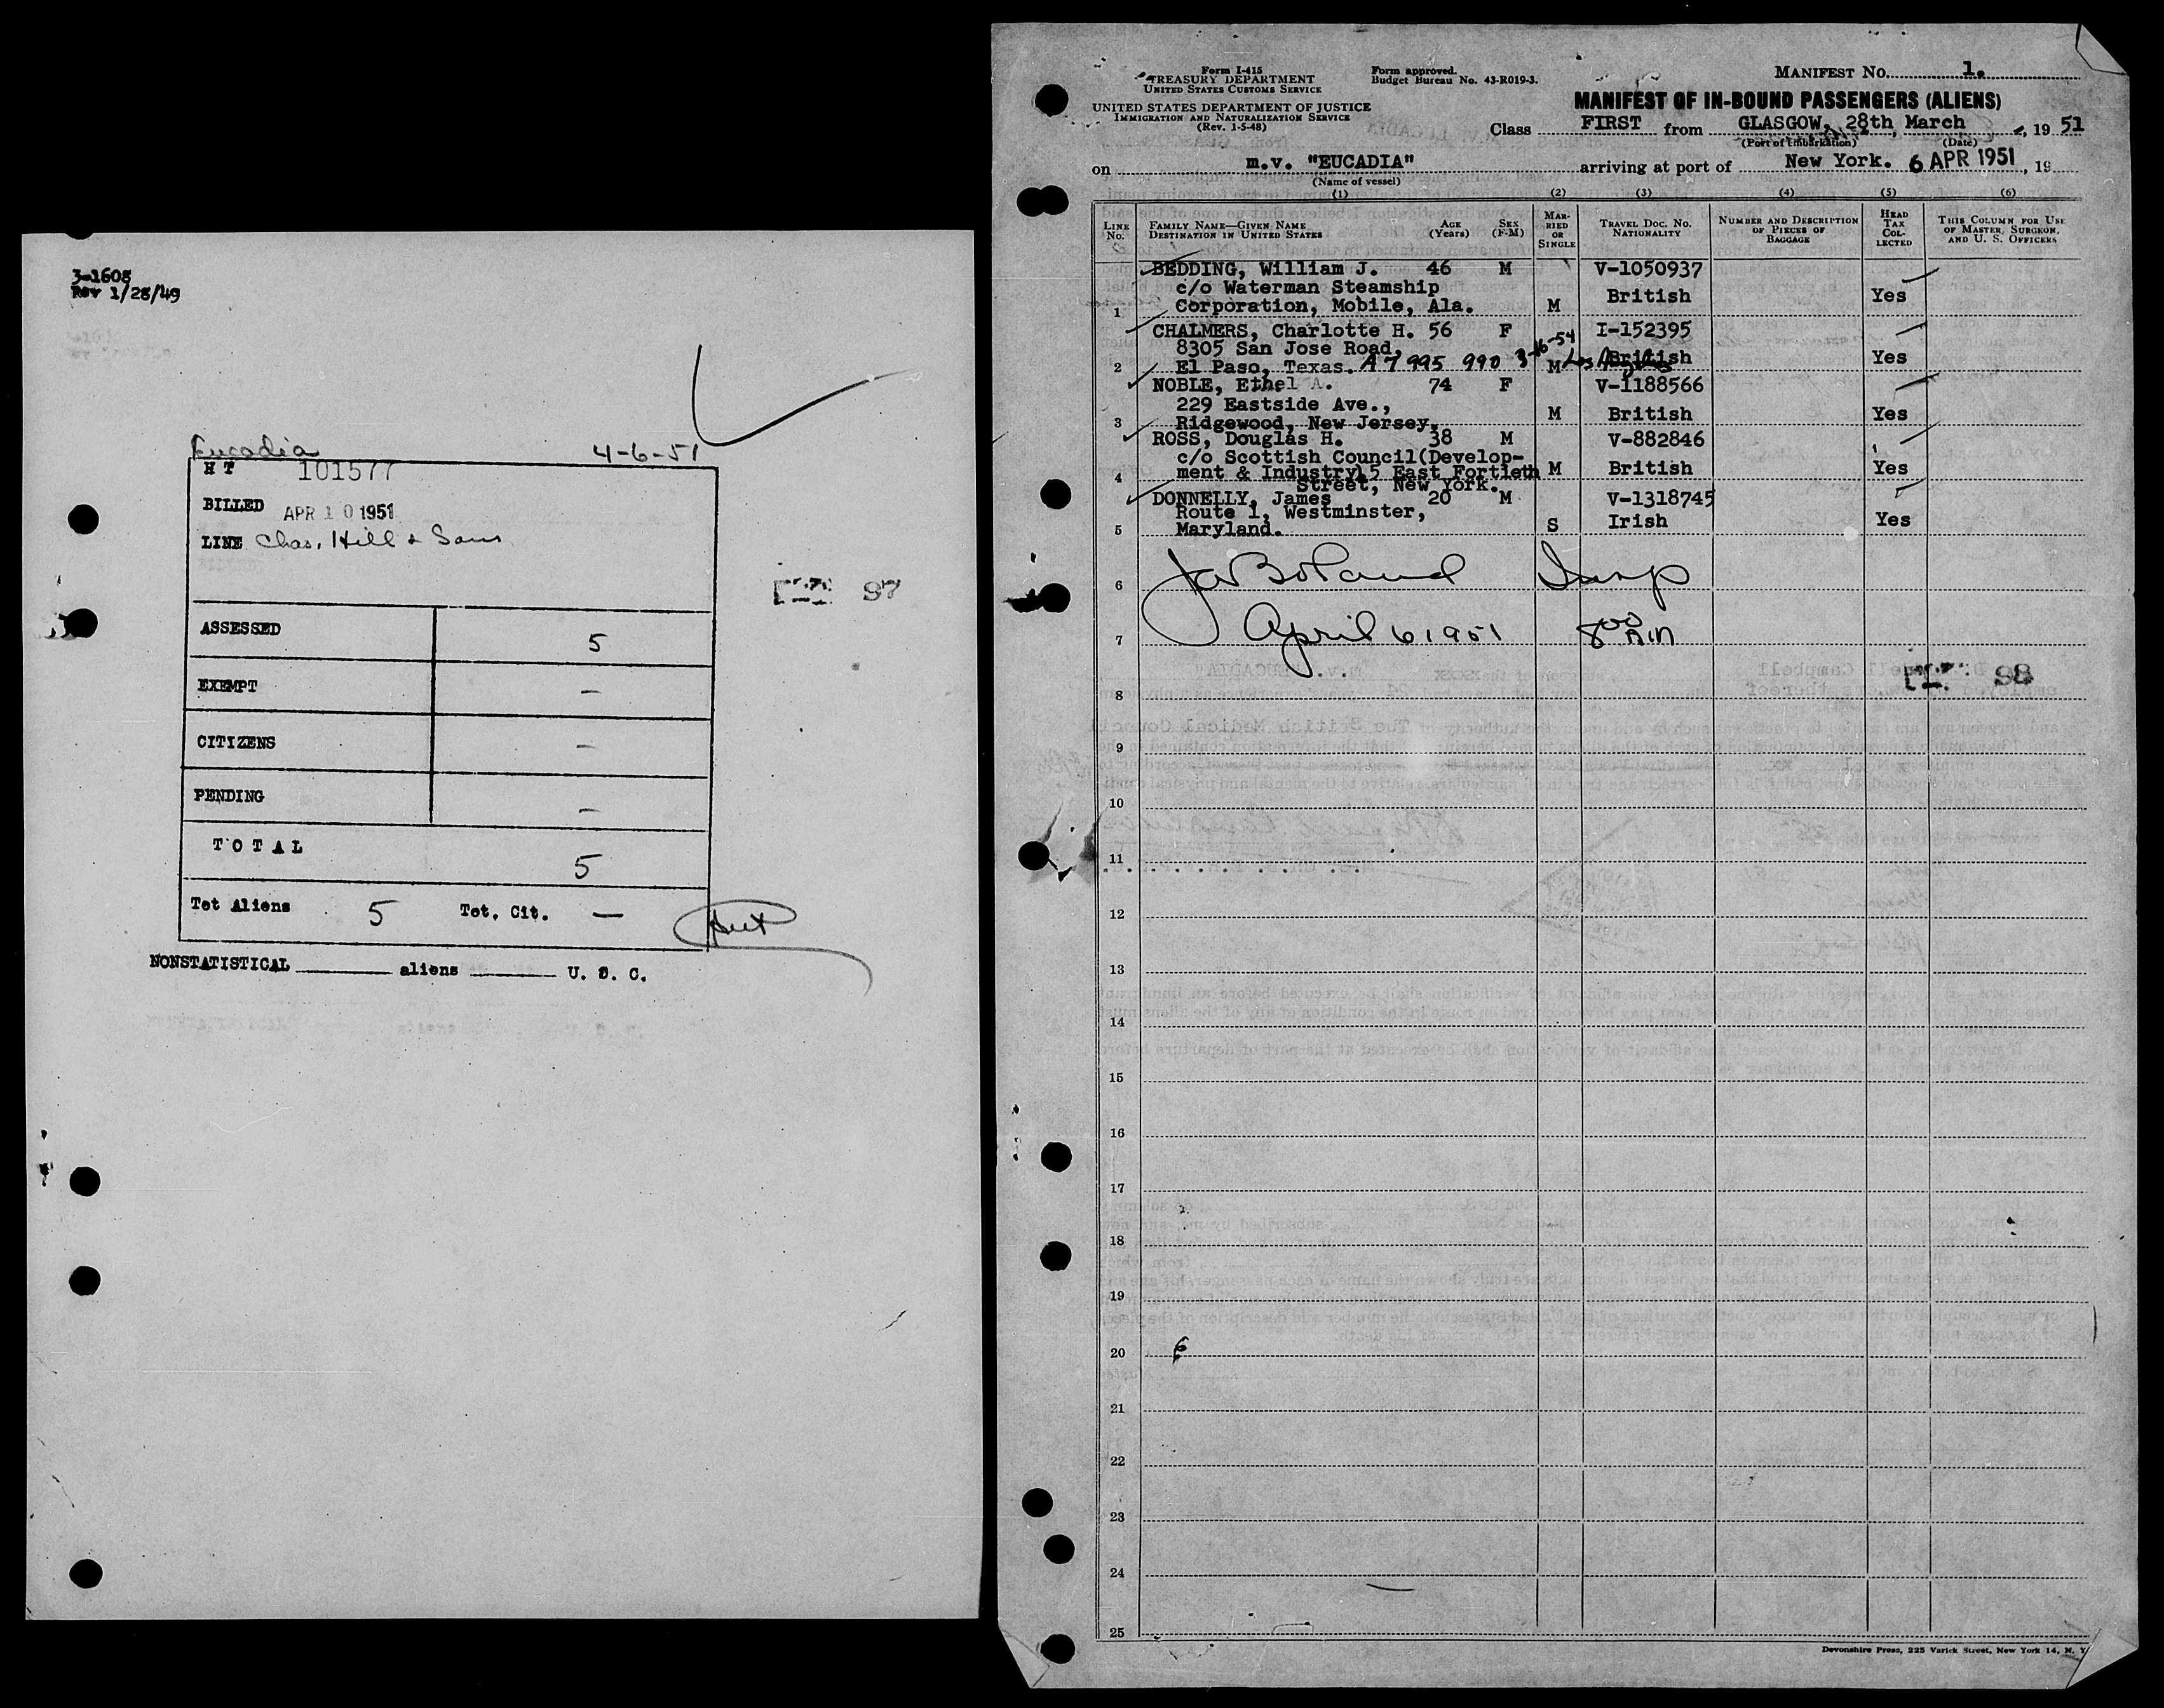 3-1608
Rev 1/28/49
Eucadia 4-6-51
H T 101577
BILLED APR 10 1951
LINE Chas. Hill & Sons
97
ASSESSED 5
EXEMPT —
CITIZENS —
PENDING —
TOTAL 5
Tot Aliens 5 Tot. Cit. —
NONSTATISTICAL aliens U. S. C.
Form I-415
TREASURY DEPARTMENT
UNITED STATES CUSTOMS SERVICE
UNITED STATES DEPARTMENT OF JUSTICE
IMMIGRATION AND NATURALIZATION SERVICE
(Rev. 1-5-48)
Form approved.
Budget Bureau No. 43-R019-3.
MANIFEST NO. 1.
MANIFEST OF IN-BOUND PASSENGERS (ALIENS)
Class FIRST from GLASGOW, 28th, March, 19 51
(Port of Embarkation) (Date)
on m.v. "EUCADIA" arriving at port of New York. 6 APR 1951, 19
(Name of vessel)
(1) (2) (3) (4) (5) (6)
LINE No. FAMILY NAME—GIVEN NAME DESTINATION IN UNITED STATES AGE (Years) SEX (F-M) MARRIED OR SINGLE TRAVEL DOC. NO. NATIONALITY NUMBER AND DESCRIPTION OF PIECES OF BAGGAGE HEAD TAX COLLECTED THIS COLUMN FOR USE OF MASTER, SURGEON, AND U. S. OFFICERS
BEDDING, William J. 46 M V-1050937
c/o Waterman Steamship British Yes
1 Corporation, Mobile, Ala. M
CHALMERS, Charlotte H. 56 F I-152395
8305 San Jose Road, British Yes
2 El Paso, Texas. A 7 995 990 3-16-54 M Los Angeles
NOBLE, Ethel A. 74 F V-1188566
229 Eastside Ave., M British Yes
3 Ridgewood, New Jersey.
ROSS, Douglas H. 38 M V-882846
c/o Scottish Council(Develop-
4 ment & Industry)5 East Fortieth M British Yes
Street, New York.
DONNELLY, James 20 M V-1318745
Route 1, Westminster, Irish Yes
5 Maryland. S
6 Insp
7 April 6 1951 8 00 AM
98
8
9
10
11
12
13
14
15
16
17
18
19
20
21
22
23
24
25
Devonshire Press, 225 Varick Street, New York 14, N. Y.